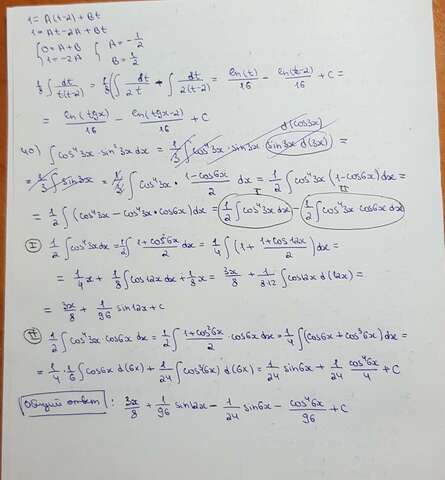 1 = A(t-2) + Bt
1 = At - 2A + Bt
{0 = A + B {A = -1/2
{1 = -2A {B = 1/2
1/8 ∫ dt/t(t-2) = 1/8 (∫ dt/2t - ∫ dt/2(t-2) = ln(t)/16 - ln(t-2)/16 + C =
= ln(tgx)/16 - ln(tgx-2)/16 + C
d(cos3x)
40) ∫ cos⁴3x · sin²3x dx = 1/3 ∫ cos⁴3x · sin3x sin3x d(3x) =
= 1/3 ∫ sin3x = ∫ cos⁴3x · 1-cos6x/2 dx = 1/2 ∫ cos⁴3x (1-cos6x) dx =
= 1/2 ∫ (cos⁴3x - cos⁴3x · cos6x) dx = I 1/2 ∫ cos⁴3x dx - II 1/2 ∫ cos⁴3x cos6x dx
I 1/2 ∫ cos⁴3x dx = 1/2 ∫ 1+cos²6x/2 dx = 1/4 ∫ (1 + 1+cos12x/2) dx =
= 1/4 x + 1/8 ∫ cos12x dx + 1/8 x = 3x/8 + 1/8·12 ∫ cos12x d(12x) =
= 3x/8 + 1/96 sin12x + C
II 1/2 ∫ cos⁴3x cos6x dx = 1/2 ∫ 1+cos²6x/2 · cos6x dx = 1/4 ∫ (cos6x + cos³6x) dx =
= 1/4 · 1/6 ∫ cos6x d(6x) + 1/24 ∫ cos³(6x) d(6x) = 1/24 sin6x + 1/24 cos⁴6x/4 + C
Общий ответ : 3x/8 + 1/96 sin12x - 1/24 sin6x - cos⁴6x/96 + C